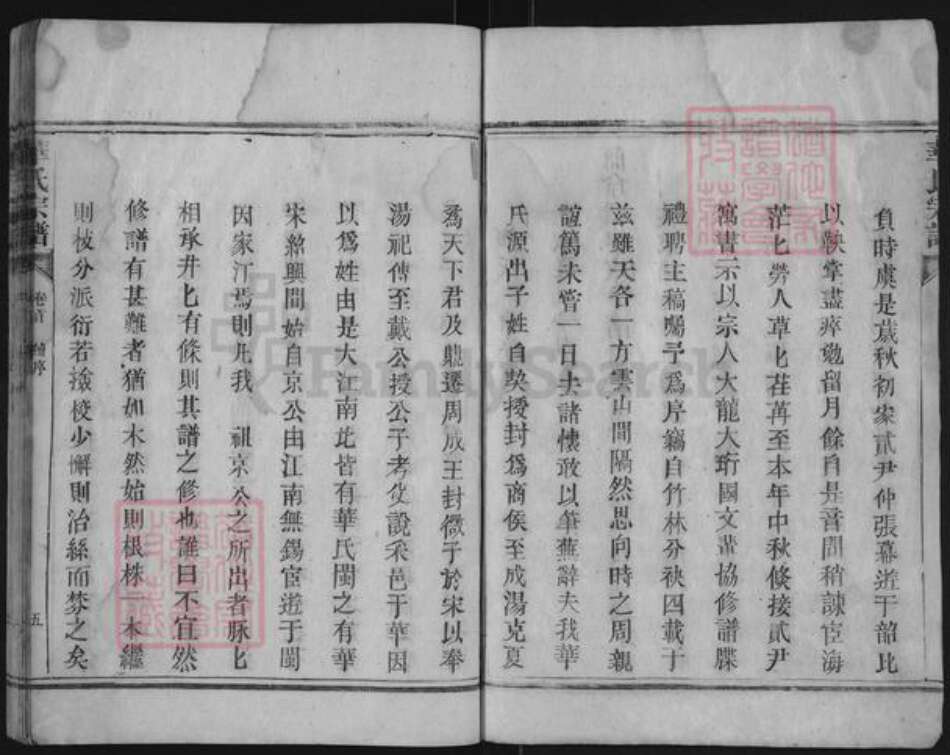 負時虞是歲秋初家貳尹仲張幕遊于韶比
以鞅掌盡瘁勉留月餘自是音問稍諫宦海
茫匕勞人草匕荏苒至本年中秋倏接貳尹
寓書示以宗人大龍大珩國文輩協修譜牒
禮聘主稿囑予爲序竊自竹林分袂四載于
茲雖天各一方雲山間隔然思向時之周親
誼篤未嘗一日去諸懷敢以筆蕪辭夫我華
氏源出子姓自契授封爲商侯至成湯克夏
爲天下君及鼎遷周成王封微子於宋以奉
湯祀傳至戴公授公子考父說采邑于華因
以爲姓由是大江南北皆有華氏閩之有華
宋紹興間始自京公由江南無錫宦遊于閩
因家江焉則凡我 祖京公之所出者脉匕
相承井匕有條則其譜之修也誰曰不宜然
修譜有甚難者猶如木然始則根株一本繼
則枝分派衍若撿校少懈則治絲而棼之矣
華氏宗譜
卷首
五
FamilySearch